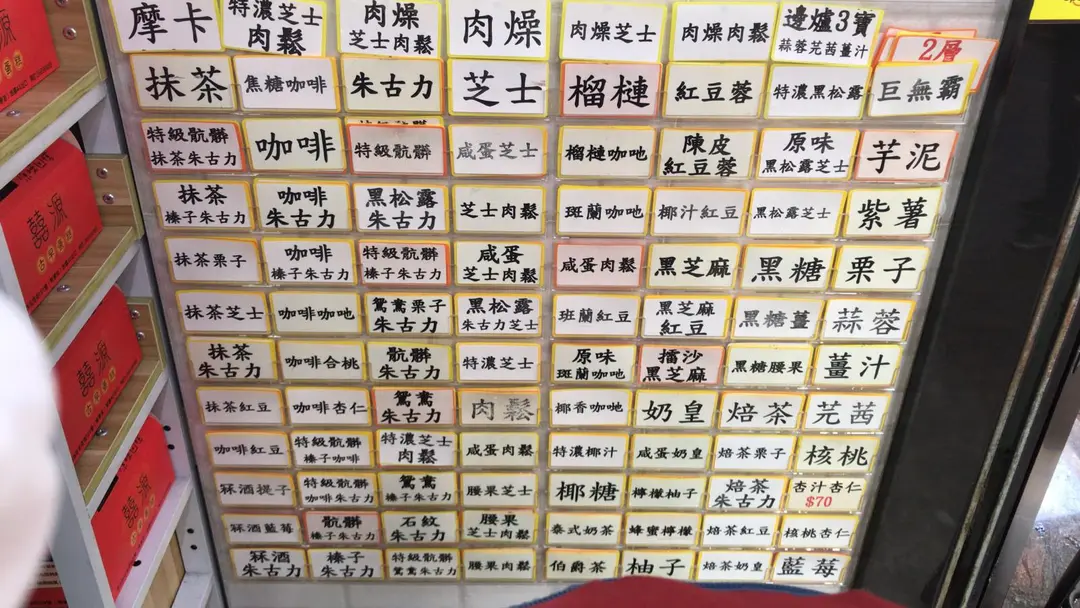 摩卡
特濃芝士
肉鬆
肉燥
芝士肉鬆
肉燥
肉燥芝士
肉燥肉鬆
邊爐3寶
蒜蓉芫茜薑汁
2層
抹茶
焦糖咖啡
朱古力
芝士
榴槤
紅豆蓉
特濃黑松露
巨無霸
特級骯髒
抹茶朱古力
咖啡
特級骯髒
咸蛋芝士
榴槤咖吔
陳皮
紅豆蓉
原味
黑松露芝士
芋泥
抹茶
榛子朱古力
咖啡
朱古力
黑松露
朱古力
芝士肉鬆
斑蘭咖吔
椰汁紅豆
黑松露芝士
紫薯
抹茶栗子
咖啡
榛子朱古力
特級骯髒
榛子朱古力
咸蛋
芝士肉鬆
咸蛋肉鬆
黑芝麻
黑糖
栗子
抹茶芝士
咖啡咖吔
鴛鴦栗子
朱古力
黑松露
朱古力芝士
班蘭紅豆
黑芝麻
紅豆
黑糖薑
蒜蓉
抹茶
朱古力
咖啡合桃
骯髒
朱古力
特濃芝士
原味
斑蘭咖吔
擂沙
黑芝麻
黑糖腰果
薑汁
抹茶紅豆
咖啡杏仁
鴛鴦
朱古力
肉鬆
椰香咖吔
奶皇
焙茶
芫茜
咖啡紅豆
特級骯髒
榛子咖啡
特濃芝士
肉鬆
咸蛋肉鬆
特濃椰汁
咸蛋奶皇
焙茶栗子
核桃
冧酒提子
特級骯髒
咖啡朱古力
鴛鴦
榛子朱古力
腰果芝士
椰糖
檸檬柚子
焙茶
朱古力
杏汁杏仁
$70
冧酒藍莓
骯髒
榛子朱古力
石紋
朱古力
腰果
芝士肉鬆
泰式奶茶
蜂蜜檸檬
焙茶紅豆
核桃杏仁
冧酒
朱古力
榛子
朱古力
特級骯髒
鴛鴦朱古力
腰果肉鬆
伯爵茶
柚子
焙茶奶皇
藍莓
囍源
囍源
囍源